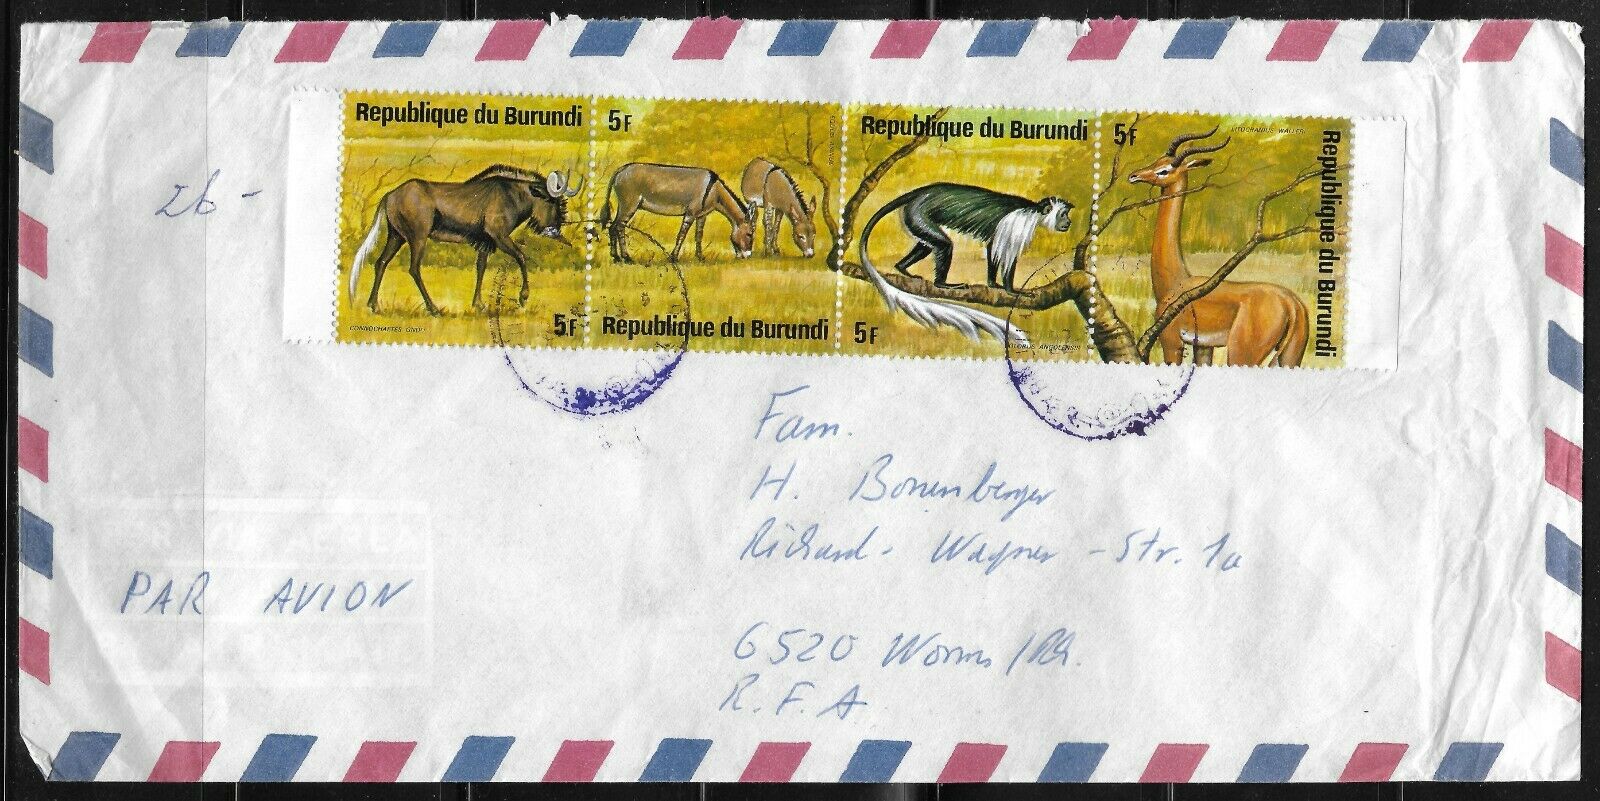 Republique du Burundi
5F
CONNOCHAETES GNOU
5F
Republique du Burundi
Republique du Burundi
5F
COLOBUS ANGOLENSIS
5F
LITOCRANIUS WALLERI
Republique du Burundi
26-
PAR AVION
Fam.
H. Bonenberger
Richard-Wagner-Str. 1a
6520 Worms/Rh.
R.F.A